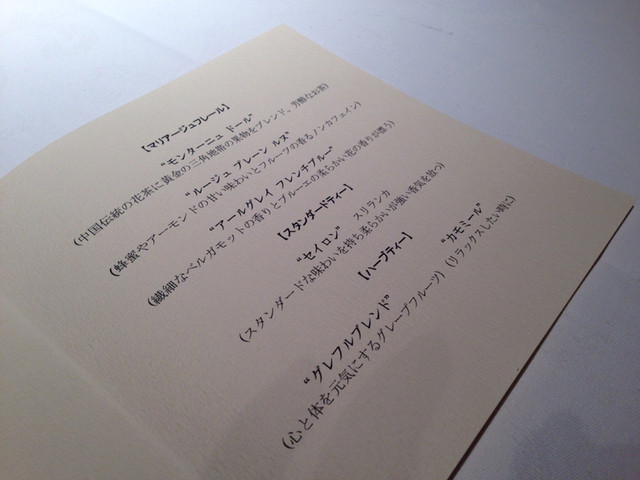 【マリアージュフレール】
“モンターニュ ドール”
(中国伝統の花茶に黄金の三角地帯の果物をブレンド、芳醇なお茶)
“ルージュ プレーン ルヌ”
(蜂蜜やアーモンドの甘い味わいとフルーツの香るノンカフェイン)
“アールグレイ フレンチブルー”
(繊細なベルガモットの香りとブルーエの柔らかい花の香りが漂う)
【スタンダードティー】
“セイロン” スリランカ
(スタンダードな味わいを持ち柔らかいが強い香気を放つ)
【ハーブティー】
“カモミール”
(リラックスしたい時に)
“グレフルブレンド”
(心と体を元気にするグレープフルーツ)